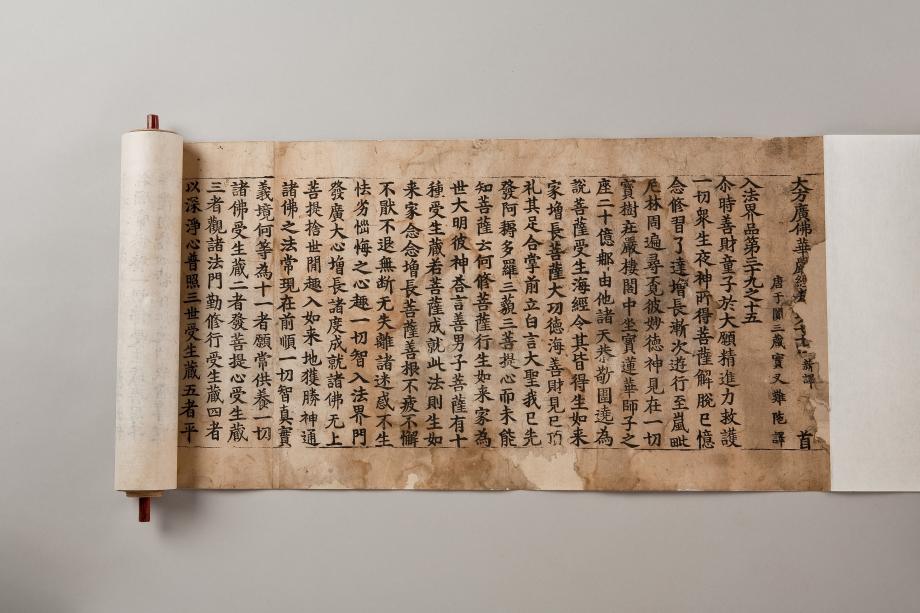 大方廣佛華嚴經卷 新譯 首
唐于闐三藏實叉難陁譯
入法界品第三十九之十五
尒時善財童子於大願精進力救護
一切衆生夜神所得菩薩解脫已憶
念修習了達增長漸次遊行至嵐毗
尼林周遍尋覔彼妙德神見在一切
寳樹庄嚴樓閣中坐寳蓮華師子之
座二十億那由他諸天恭敬圍遶為
說菩薩受生海經令其皆得生如来
家增長菩薩大功德海善財見已頂
礼其足合掌前立白言大聖我已先
發阿耨多羅三藐三菩提心而未能
知菩薩云何修菩薩行生如来家為
世大明彼神荅言善男子菩薩有十
種受生藏若菩薩成就此法則生如
来家念念增長菩薩善根不疲不懈
不猒不退無断无失離諸迷惑不生
怯劣惱悔之心趣一切智入法界門
發廣大心增長諸度成就諸佛无上
菩提捨世間趣入如来地獲勝神通
諸佛之法常現在前順一切智真實
義境何等為十一者願常供養一切
諸佛受生藏二者發菩提心受生藏
三者觀諸法門勤修行受生藏四者
以深淨心普照三世受生藏五者平